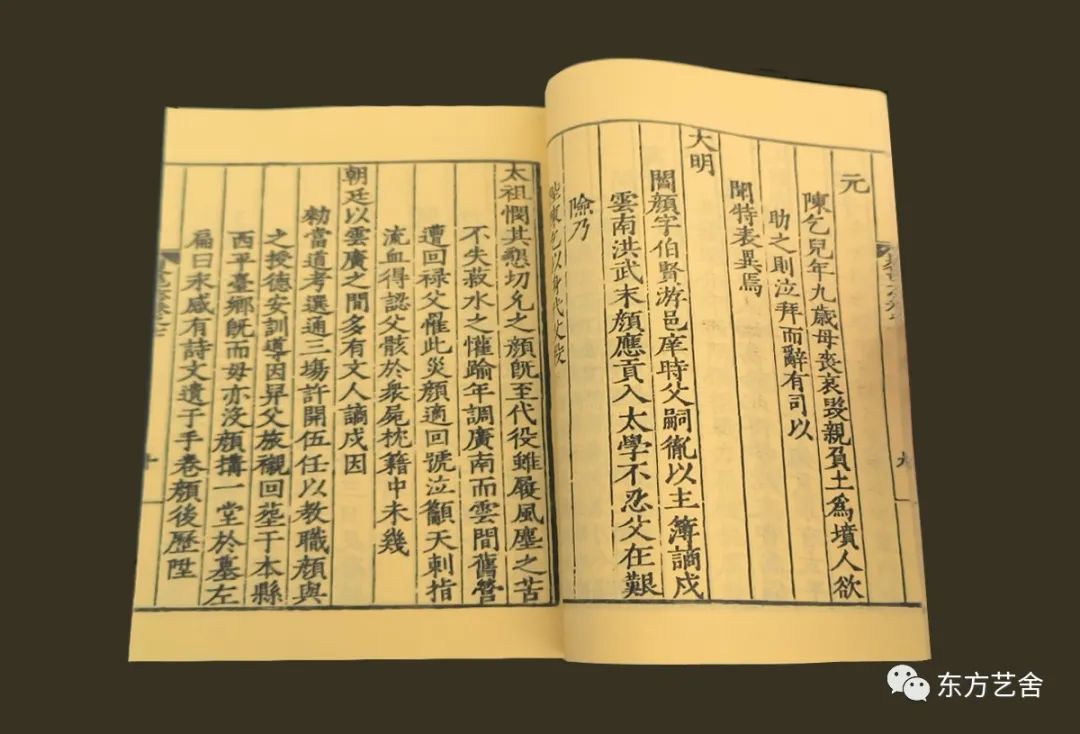 元
陳乞兒年九歲母喪哀毀親負土為墳人欲
助之則泣拜而辭有司以
聞特表異焉
大明
閻顏字伯賢游邑庠時父嗣胤以主簿謫戍
雲南洪武末顏應貢入太學不忍父在艱
險乃
以身代父役
太祖憫其懇切允之顏既至代役雖履風塵之苦
不失菽水之懽踰年調廣南而雲間舊營
遭回禄父罹此災顏適回號泣籲天刺指
流血得認父骸於衆屍枕籍中未幾
朝廷以雲廣之間多有文人謫戍因
勑當道考選通三塲許開伍任以教職顏與
之授德安訓導因舁父旅櫬回塟于本縣
西平臺鄉既而母亦没顏搆一堂於墓左
扁曰永感有詩文遺子手卷顏後歷陞
九
十
东方艺舍